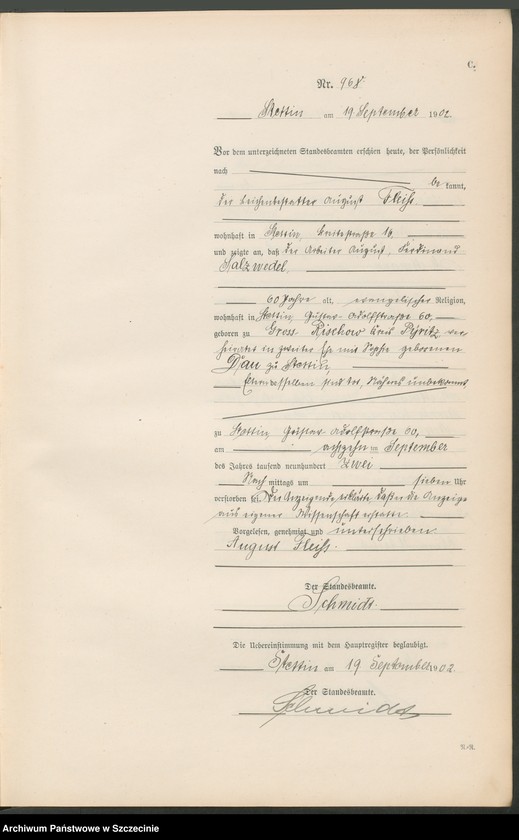 C.
Nr. 968
Stettin am 19 September 1902
Vor dem unterzeichneten Standesbeamten erschien heute, der Persönlichkeit
nach
be kannt,
der Leichenbestatter August Fleiß
wohnhaft in Stettin, Breitestraße 16,
und zeigte an, daß der Arbeiter August, Ferdinand
Salzwedel,
60 Jahre alt, evangelischer Religion,
wohnhaft in Stettin, Gustav-Adolfstraße 60,
geboren zu Gross Rischow Kreis Pyritz ver
heiratet in zweiter Ehe mit Sophie geborenen
Dau zu Stettin,
sind tot, Näheres unbekannt
zu Stettin, Gustav Adolfstraße 60,
am achtzehn ten September
des Jahres tausend neunhundert zwei
Nach mittags um sieben Uhr
verstorben sei. Der Anzeigende erklärte daß er die Anzeige
aus eigener Wissenschaft erstatte.
Vorgelesen, genehmigt und unterschrieben
August Fleiß.
Der Standesbeamte.
Schmidt
Die Uebereinstimmung mit dem Hauptregister beglaubigt.
Stettin am 19 September 1902
Der Standesbeamte.
Schmidt
Archiwum Państwowe w Szczecinie